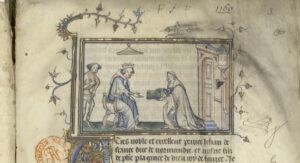 Tres noble et excellent prince Jehan de
france duc de normandie et ainsne filz
de phe par la grace de dieu roy de france Je